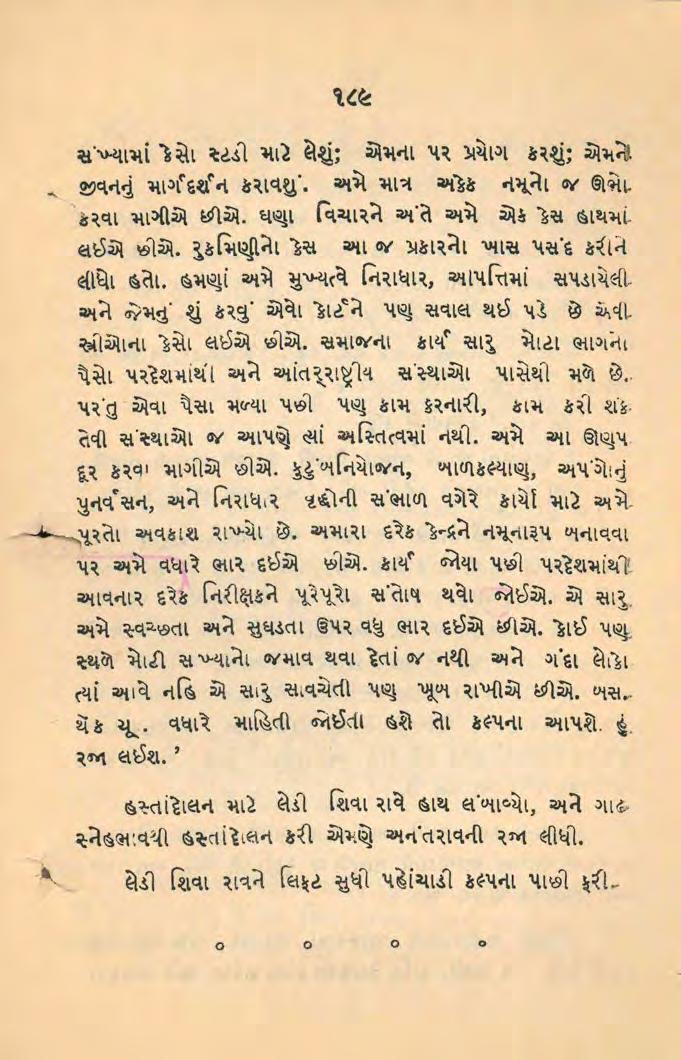 ૧૮૯
સંખ્યામાં કેસો સ્ટડી માટે લેશું; એમના પર પ્રયોગ કરશું; એમનો
જીવનનું માર્ગદર્શન કરાવશું. અમે માત્ર અકેક નમૂનો જ ઊભો
કરવા માગીએ છીએ. ઘણા વિચારને અંતે અમે એક કેસ હાથમાં
લઈએ છીએ. રુકમિણીનો કેસ આ જ પ્રકારનો ખાસ પસંદ કરીને
લીધો હતો. હમણાં અમે મુખ્યત્વે નિરાધાર, આપત્તિમાં સપડાયેલી
અને જેમનું શું કરવું એવો કોર્ટને પણ સવાલ થઈ પડે છે એવી
સ્ત્રીઓના કેસો લઈએ છીએ. સમાજના કાર્ય સારુ મોટા ભાગનો
પૈસો પરદેશમાંથી અને આંતર્‌રાષ્ટ્રીય સંસ્થાઓ પાસેથી મળે છે.
પરંતુ એવા પૈસા મળ્યા પછી પણ કામ કરનારી, કામ કરી શકે
તેવી સંસ્થાઓ જ આપણે ત્યાં અસ્તિત્વમાં નથી. અમે આ ઊણપ
દૂર કરવા માગીએ છીએ. કુટુંબનિયોજન, બાળકલ્યાણ, અપંગોનું
પુનર્વસન, અને નિરાધાર વૃદ્ધોની સંભાળ વગેરે કાર્યો માટે અમે
પૂરતો અવકાશ રાખ્યો છે. અમારા દરેક કેન્દ્રને નમૂનારૂપ બનાવવા
પર અમે વધારે ભાર દઈએ છીએ. કાર્ય જોયા પછી પરદેશમાંથી
આવનાર દરેક નિરીક્ષકને પૂરેપૂરો સંતોષ થવો જોઈએ. એ સારુ
અમે સ્વચ્છતા અને સુઘડતા ઉપર વધુ ભાર દઈએ છીએ. કોઈ પણ
સ્થળે મોટી સંખ્યાનો જમાવ થવા દેતાં જ નથી અને ગંદા લોકો
ત્યાં આવે નહિ એ સારુ સાવચેતી પણ ખૂબ રાખીએ છીએ. બસ.
થેંક યૂ. વધારે માહિતી જોઈતા હશે તો કલ્પના આપશે. હું
રજા લઈશ.’
હસ્તાંદોલન માટે લેડી શિવા રાવે હાથ લંબાવ્યો, અને ગાઢ
સ્નેહભાવથી હસ્તાંદોલન કરી એમણે અનંતરાવની રજા લીધી.
લેડી શિવા રાવને લિફ્ટ સુધી પહોંચાડી કલ્પના પાછી ફરી.